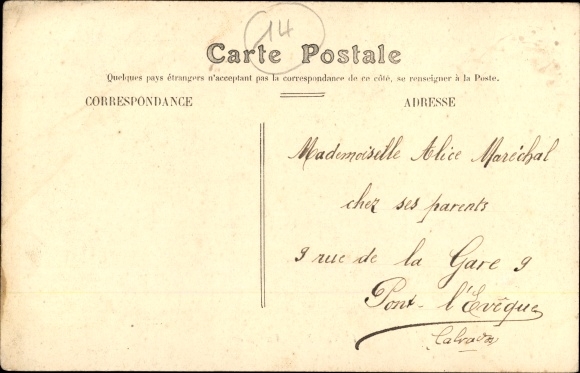 14
Carte Postale
Quelques pays étrangers n'acceptant pas la correspondance de ce côté, se renseigner à la Poste.
CORRESPONDANCE
ADRESSE
Mademoiselle Alice Maréchal
chez ses parents
9 rue de la Gare 9
Pont-l'Evêque
Calvados